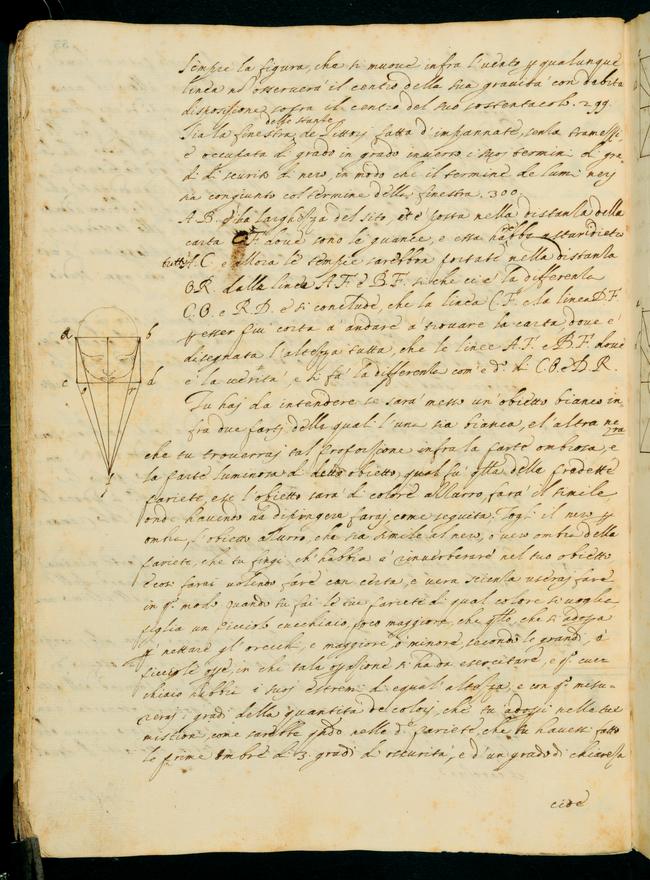 Sempre la figura, che si muove infra l'vento p qualunque
linea no osserverà il centro della sua gravità con debita
dispositione sopra il centro del suo sostentacolo. 299.
delle stanze
Sia la finestra de Pittori fatta d'impannate, senza tramessi,
e occupata di grado in grado inverso i suoi termini di gra
di di scurito di nero, in modo che il termine de lumi non
sia congiunto col termine della finestra. 300.
A. B. è la larghezza del sito, et è posta nella distanza della
carta C. F. dove sono le guance, e essa
tutto A. C. e allora le tempie sarebbon portate nella distanza
O. R. dalla linea A. F. e B. F. si che ci è la differenza
C. O. e R. D. e si conclude, che la linea C. F. e la linea D. F.
p esser più corta à andare à trovare la carta dove è
disegnata l'altezza tutta, che le linee A. F. e B. F. dove
è la verità, e si fà la differenza com' è d.º di C. O. e D. R.
Tu hai da intendere se sara messo un' obietto bianco in-
fra due pareti delle quali l'una sia bianca, e l'altra ne
gra
che tu troverrai tal proportione infra la parte ombrosa, e
la parte luminosa di detto obietto, qual fù qlla delle predette
pariete, e se l'obietto sarà di colore azzurro farà il simile
onde havendo da dipingere farai come seguita. Togli il nero p
ombra, l'obietto azzurro, che sia simile al nero, o vero ombra della
pariete, che tu fingi ch' habbia à rinverberare nel tuo obietto
e così farai volendo fare con certa, e vera scienza userai fare
in q.º modo quando tu fai le tue pariete di qual colore si voglia
piglia un piccolo cucchiaio poco maggiore, che qllo, che si adopra
p nettare gl' orecchi, e maggiore, ò minore secondo le grandi, ò
piccole opre, in che tale opratione si ha da esercitare, e q.º cuc-
chiaio habbia i suoi estremi di equal' altezza, e con q.º misu-
rerai i gradi della quantità de colori, che tu adopri nelle tue
mistion, come sarebbe qndo nelle d.e pariete, che tu havessi fatto
le prime ombre di 3. gradi di oscurità, e d'un grado di chiarezza
cioè
a b
c d
o r
f